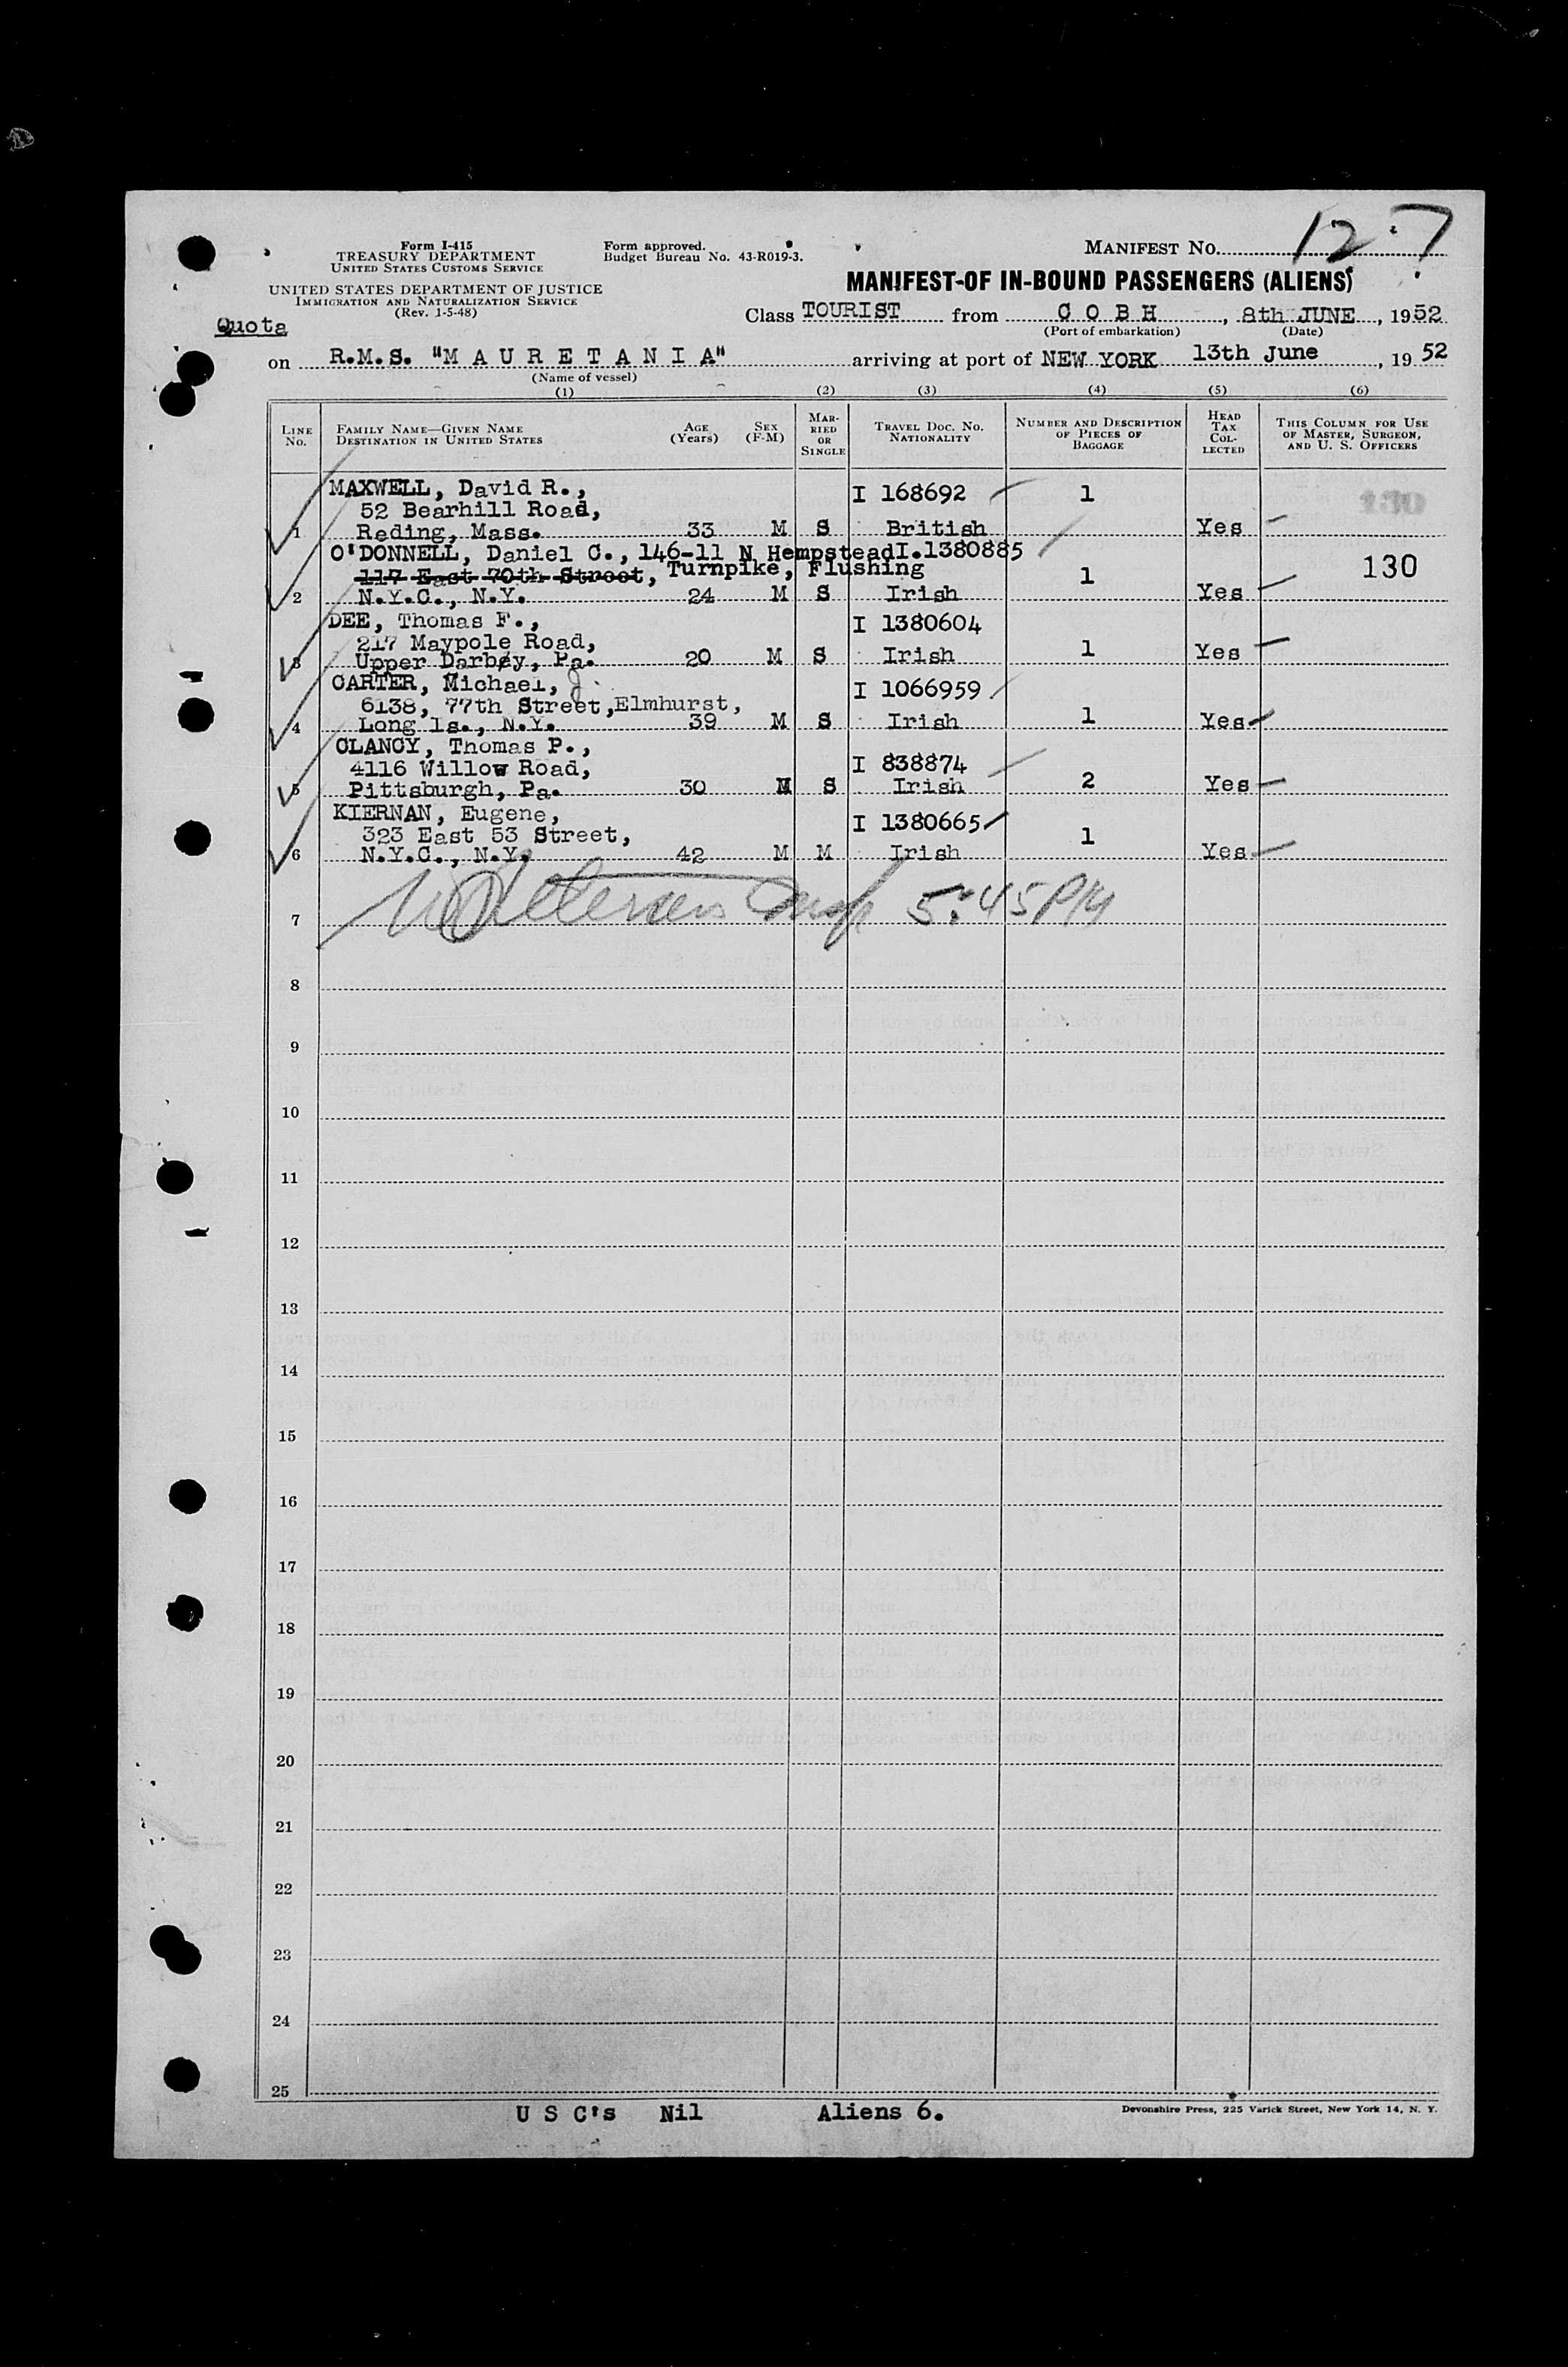 12 7
Form I-415
TREASURY DEPARTMENT
UNITED STATES CUSTOMS SERVICE
UNITED STATES DEPARTMENT OF JUSTICE
IMMIGRATION AND NATURALIZATION SERVICE
(Rev. 1-5-48)
Form approved.
Budget Bureau No. 43-R019-3.
MANIFEST NO.
MANIFEST OF IN-BOUND PASSENGERS (ALIENS)
Quota
Class TOURIST from C O B H, 8th JUNE, 1952
(Port of embarkation) (Date)
on R.M.S. "M A U R E T A N I A" arriving at port of NEW YORK 13th June, 19 52
(Name of vessel)
(1) (2) (3) (4) (5) (6)
LINE No. FAMILY NAME—GIVEN NAME DESTINATION IN UNITED STATES AGE (Years) SEX (F-M) MARRIED OR SINGLE TRAVEL DOC. NO. NATIONALITY NUMBER AND DESCRIPTION OF PIECES OF BAGGAGE HEAD TAX COLLECTED THIS COLUMN FOR USE OF MASTER, SURGEON, AND U. S. OFFICERS
MAXWELL, David R., I 168692 1 130
52 Bearhill Road,
1 Reding, Mass. 33 M S British Yes
O'DONNELL, Daniel C., 146-11 N Hempstead I.1380885
117 East 70th Street, Turnpike, Flushing 1 130
2 N.Y.C., N.Y. 24 M S Irish Yes
DEE, Thomas F., I 1380604
217 Maypole Road,
3 Upper Darbey, Pa. 20 M S Irish 1 Yes
CARTER, Michael, J. I 1066959
6138, 77th Street, Elmhurst,
4 Long Is., N.Y. 39 M S Irish 1 Yes
CLANCY, Thomas P.,
4116 Willow Road, I 838874
5 Pittsburgh, Pa. 30 M S Irish 2 Yes
KIERNAN, Eugene, I 1380665
323 East 53 Street, 1
6 N.Y.C., N.Y. 42 M M Irish Yes
Insp 5:45 PM
7
8
9
10
11
12
13
14
15
16
17
18
19
20
21
22
23
24
25
U S C's Nil Aliens 6.
Devonshire Press, 225 Varick Street, New York 14, N. Y.